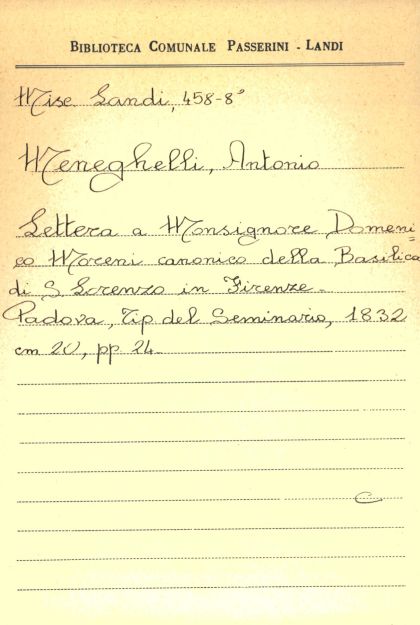 BIBLIOTECA COMUNALE PASSERINI - LANDI
Misc. Landi, 458-8°
Meneghelli, Antonio
Lettera a Monsignore Domeni=
co Moreni canonico della Basilica
di S. Lorenzo in Firenze.
Padova, Tip del Seminario, 1832
cm 20, pp 24.
C